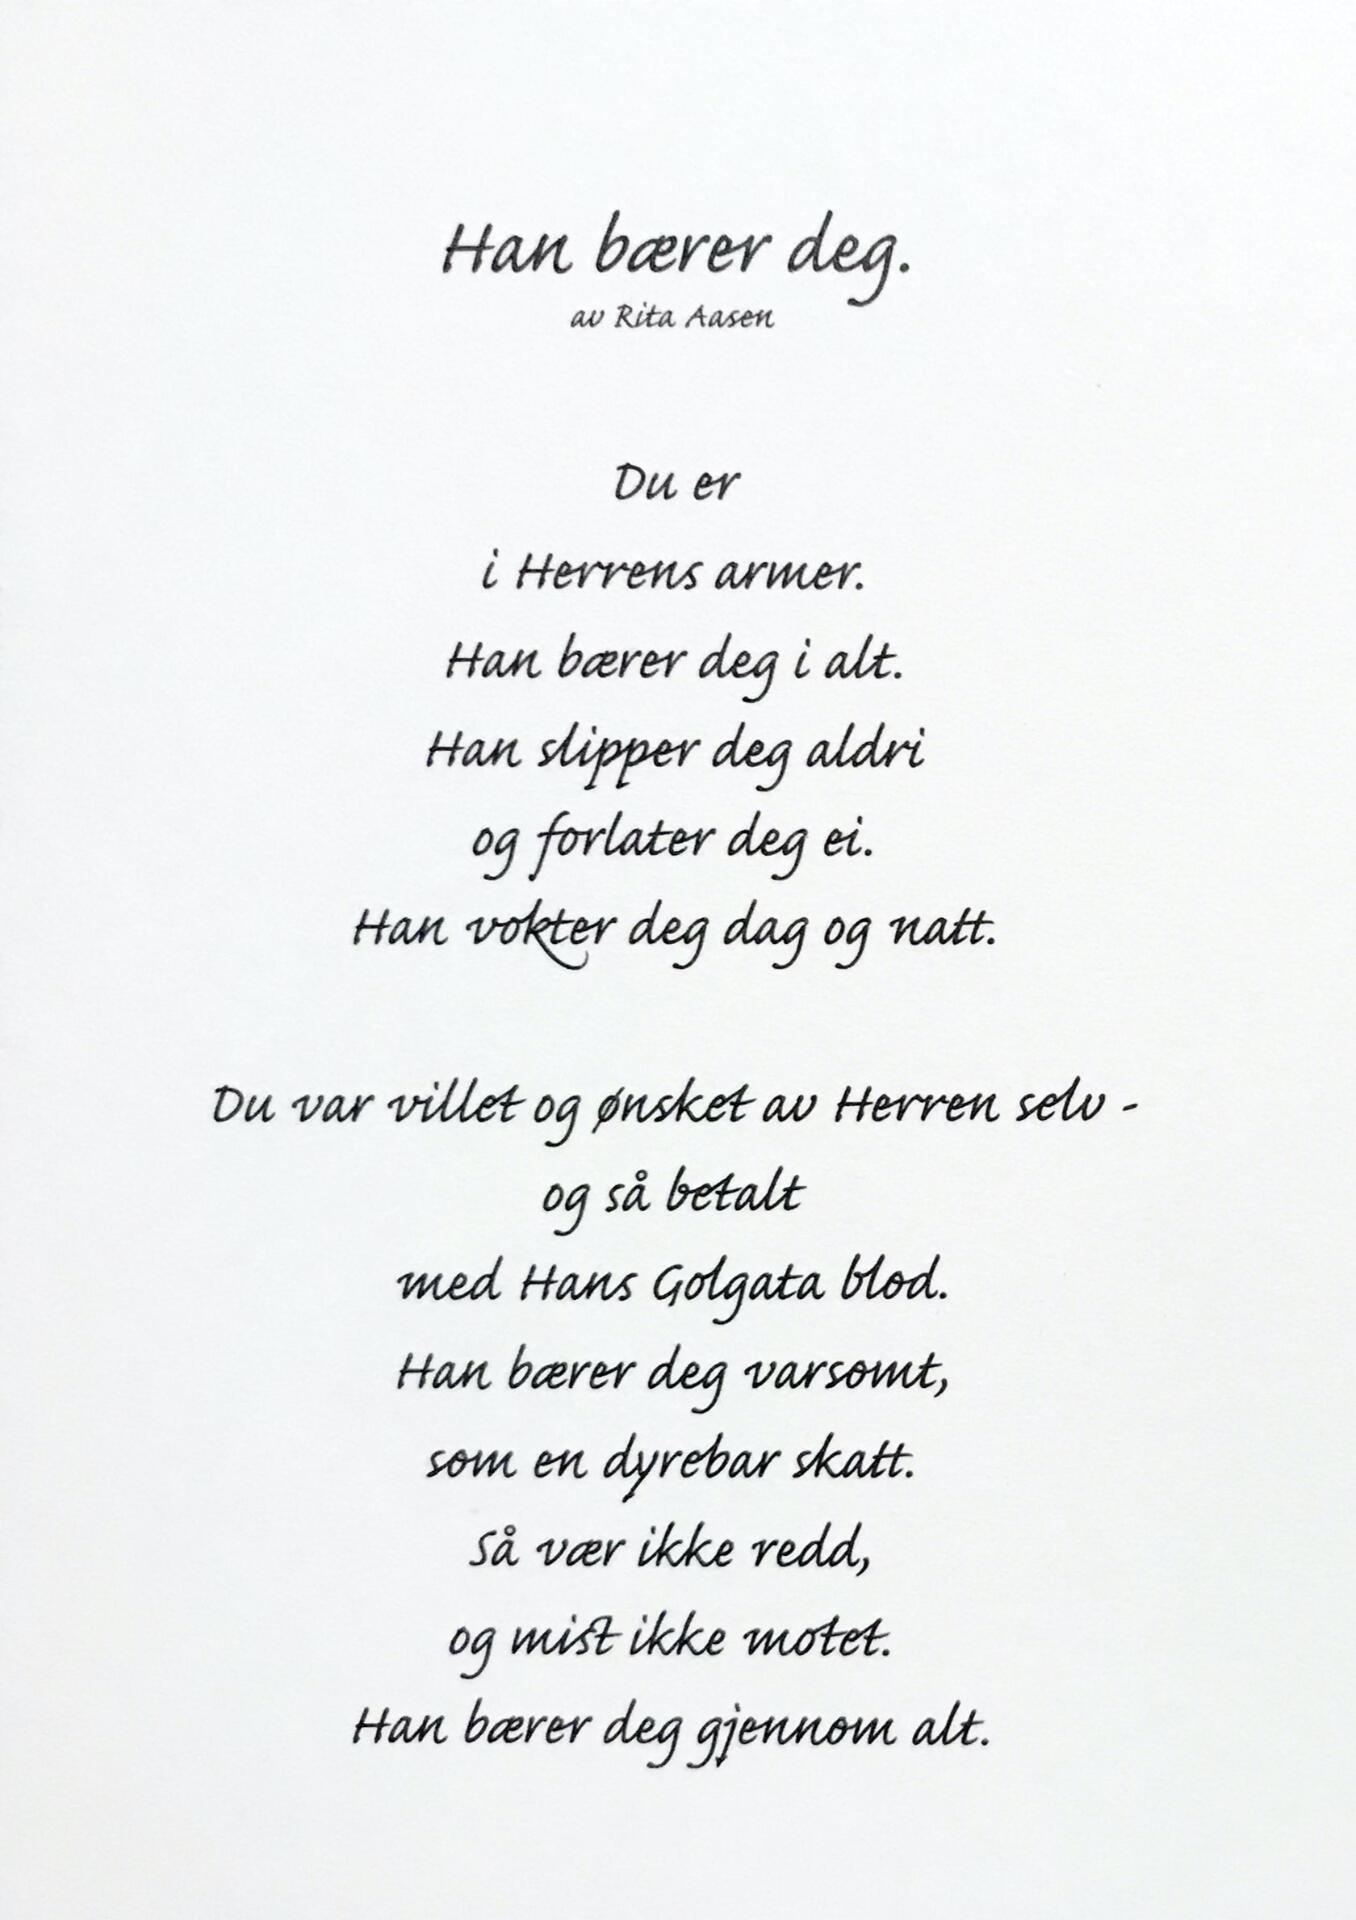 Han bærer deg.
av Rita Aasen
Du er
i Herrens armer.
Han bærer deg i alt.
Han slipper deg aldri
og forlater deg ei.
Han vokter deg dag og natt.
Du var villet og ønsket av Herren selv -
og så betalt
med Hans Golgata blod.
Han bærer deg varsomt,
som en dyrebar skatt.
Så vær ikke redd,
og mist ikke motet.
Han bærer deg gjennom alt.